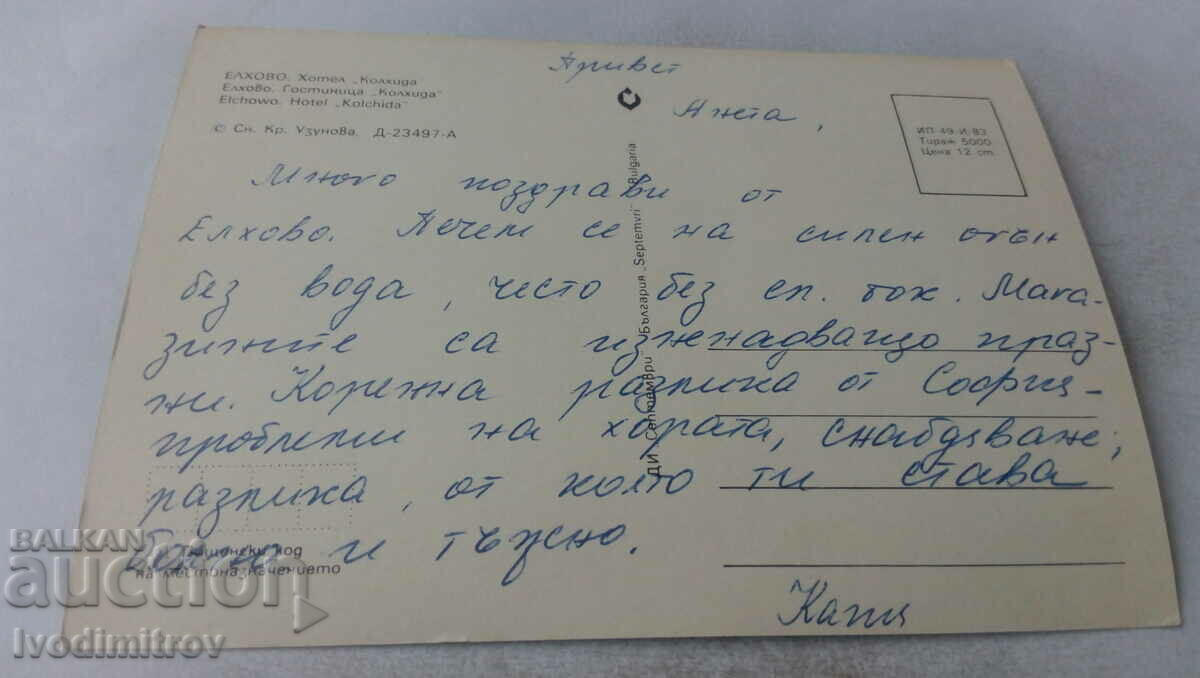 ЕЛХОВО. Хотел „Колхида"
Елхово. Гостиница „Колхида"
Elchowo. Hotel „Kolchida"
© Сн. Кр. Узунова. Д-23497-А
ИП-49-И-83
Тираж 5000
Цена 12 ст.
ДИ „Септември" България „Septemvri" Bulgaria
Привет
Анета,
Много поздрави от
Елхово. Печем се на силен огън
без вода, често без ел. ток. Мага-
зините са изненадващо праз-
ни. Коренна разлика от София -
проблеми на хората, снабдяване,
разлика, от която ти става
болно и тъжно.
Катя
Пощенски код
на местоназначението
BALKAN
auction
Ivodimitrov